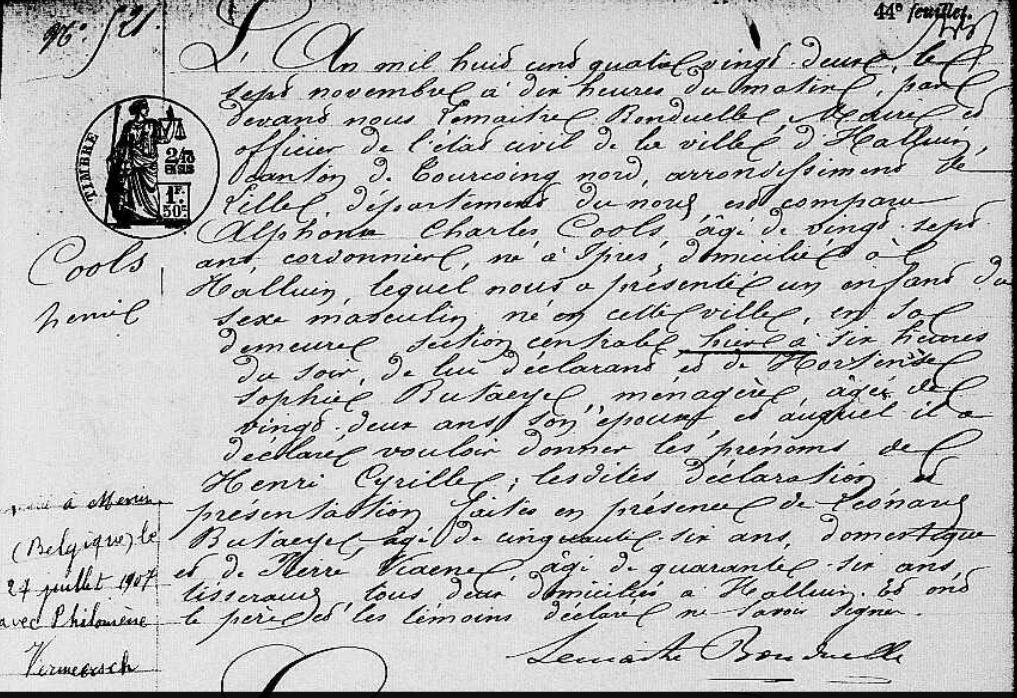 44e feuillet.
521.
L'An mil huit cent quatre vingt-deux, le
sept novembre à dix heures du matin, par
devant nous Lemaitre Bonduelle, Maire et
officier de l'état civil de la ville d'Halluin,
canton de Tourcoing nord, arrondissement de
Lille, département du nord, est comparu
Alphonse Charles Cools, âgé de vingt-sept
ans, cordonnier, né à Ipres, domicilié à
Halluin, lequel nous a présenté un enfant du
sexe masculin né en cette ville, en sa
demeure section centrale, hier à six heures
du soir, de lui déclarant et de Hortense
Sophie Butaeye, ménagère, âgée de
vingt-deux ans, son épouse, et auquel il a
déclaré vouloir donner les prénoms de
Henri Cyrille; lesdites déclaration et
présentation faites en présence de Léonard
Butaeye, âgé de cinquante-six ans, domestique
et de Pierre Viaene, âgé de quarante-six ans
tisserand, tous deux domiciliés à Halluin. Et ont
le père et les témoins déclaré ne savoir signer.
Lemaitre Bonduelle
TIMBRE
2/10
EN SUS
1F.
50c.
Cools,
henri
à Menin
(Belgique) le
27 juillet 1907
avec Philomène
Vermeersch